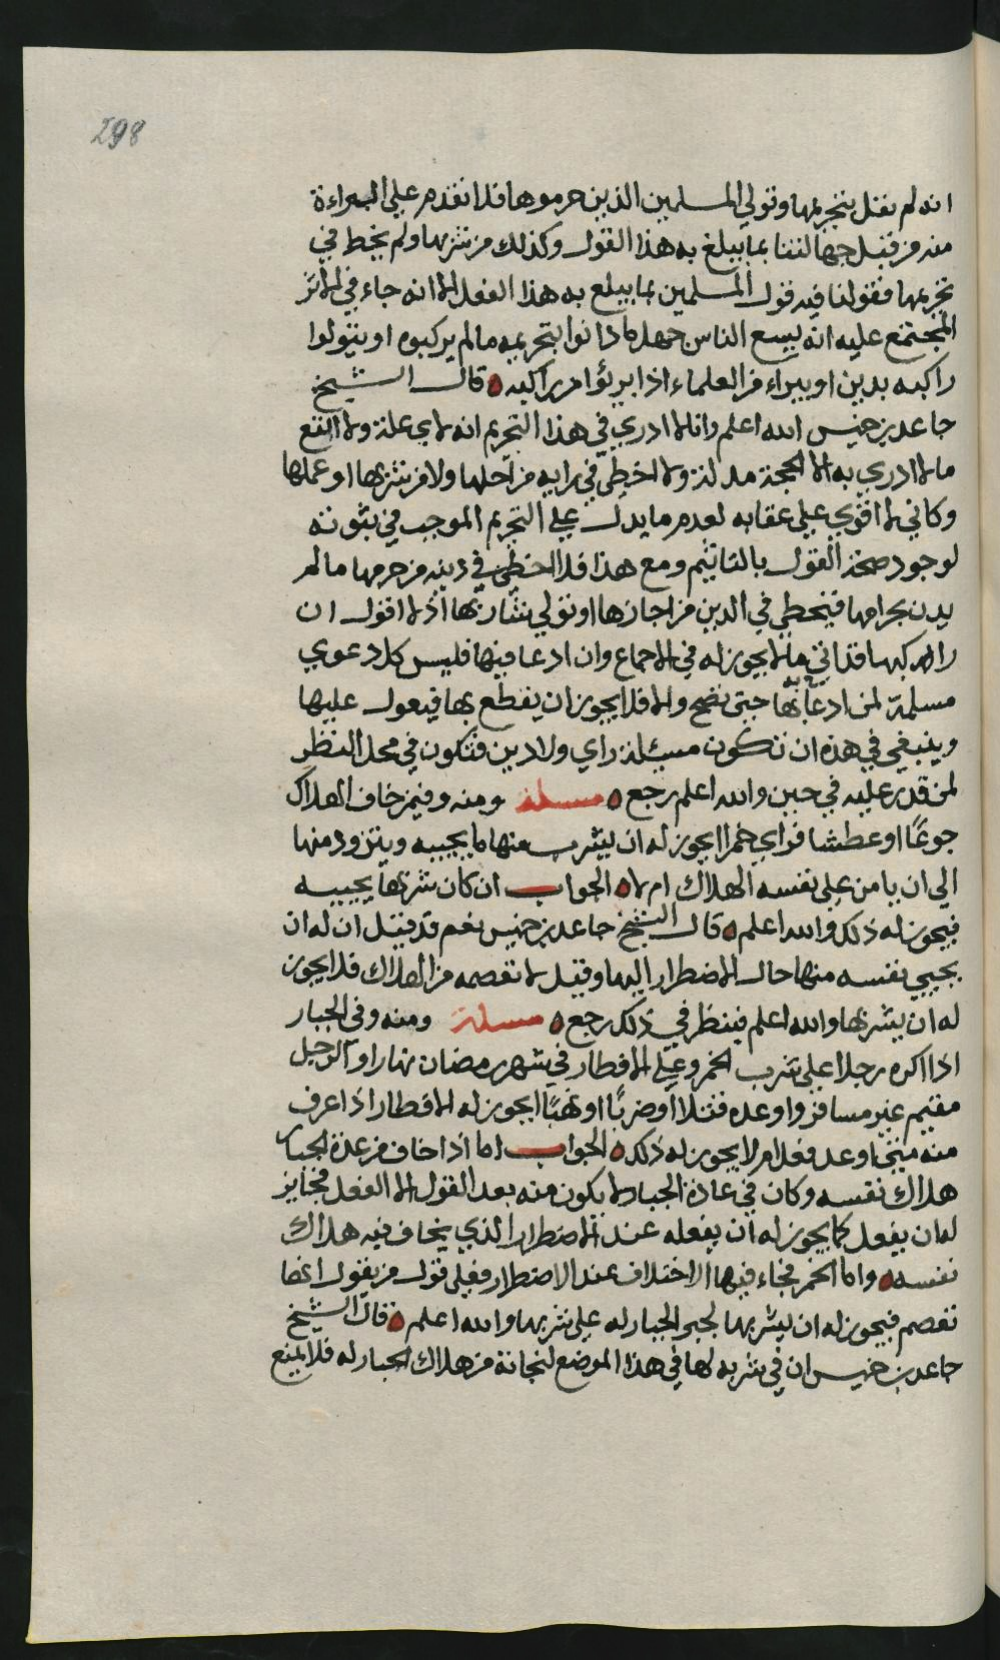 298
انه لم يقل بتحريمها وتولي المسلمين الذين حرموها فلا نقدم علي البراءة
منه من قبل جهالتنا بما يبلغ به هذا القول وكذلك من شربها ولم يخط في
تحريمها فقولنا فيه قول المسلمين بما يبلغ به هذا الفعل الا انه جاء في الاثر
المجتمع عليه انه يسع الناس جهل ما دانوا بتحريمه ما لم يركبوه او يتولوا
راكبه بدين او يبراء من العلماء اذا برئوا من راكبه ه قال الشيخ
جاعد بن خميس الله اعلم وانا لا ادري في هذا التحريم انه لاي علة ولا اتبع
ما لا ادري به الا لحجة مدلة ولا اخطي في رايه من احلها ولا من شربها او عملها
وكاني لا اقوي علي عقابه لعدم ما يدل علي التحريم الموجب في ثبوته
لوجود صحة القول بالتاثيم ومع هذا فلا اخطي في دينه من حرمها ما لم
يدن بحرامها فيخطي في الدين من اجازها او تولي شاربها اذ لا اقول ان
راكبها قد اتي ما لا يجوز له في الاجماع وان ادعا فيها فليس كل دعوي
مسلمة لمن ادعا بها حتي تصح والا فلا يجوز ان يقطع بها فيعول عليها
وينبغي في هذه ان تكون مسئلة راي ولا دين فتكون في محل النظر
لمن قدر عليه في حين والله اعلم رجع ه مسئلة ومنه وفيمن خاف الهلاك
جوعًا او عطشا فراي خمرا ايجوز له ان يشرب منها ما يحييه ويتزود منها
الي ان يامن علي نفسه الهلاك ام لا ه الجواب ان كان شربها يحييه
فيجوز له ذلك والله اعلم ه قال الشيخ جاعد بن خميس نعم قد قيل ان له ان
يحيي نفسه منها حال الاضطرار اليها وقيل لا تعصمه من الهلاك فلا يجوز
له ان يشربها والله اعلم فينظر في ذلك رجع ه مسئلة ومنه وفي الجبار
اذا اكره رجلا علي شرب الخمر وعلي الافطار في شهر رمضان نهارا والرجل
مقيم غير مسافر واوعده قتلا او ضربًا او نهبًا ايجوز له الافطار اذا عرف
منه متي اوعد فعل ام لا يجوز له ذلك ه الجواب اما اذا خاف من هذة الجبار
هلاك نفسه وكان في عادة الجبار لا يكون منه بعد القول الا الفعل فجايز
له ان يفعل كما يجوز له ان يفعله عند الاضطرار الذي يخاف فيه هلاك
نفسه ه واما الخمر فجاء فيها الاختلاف عند الاضطرار فعلي قول من يقول انها
تعصم فيجوز له ان يشربها لجبر الجبار له علي شربها والله اعلم ه قال الشيخ
جاعد بن خميس ان في شربه لها في هذا الموضع لنجاتة من هلاك الجبار له فلا يمنع